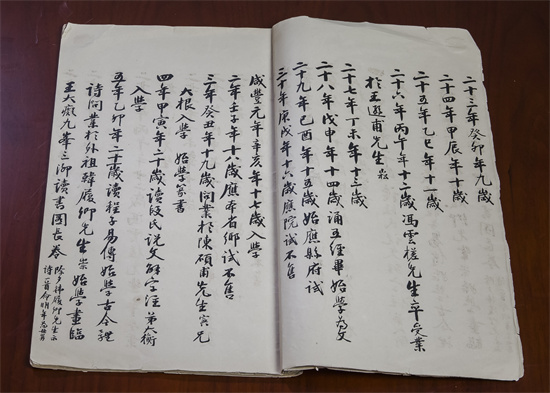 二十三年癸卯年九歲
二十四年甲辰年十歲
二十五年乙巳年十一歲
二十六年丙午年十二歲馮雲槎先生卒受業
於王遵甫先生
二十七年丁未年十三歲
二十八年戊申年十四歲誦五經畢始學為文
二十九年己酉年十五歲始應縣府試
三十年庚戌年十六歲應院試不售
咸豐元年辛亥年十七歲入學
二年壬子年十八歲應本省鄉試不售
三年癸丑年十九歲問業於陳碩甫先生奐兄
大根入學 始學篆書
四年甲寅年二十歲讀段氏說文解字注 弟大衡
入學
五年乙卯年二十一歲讀程子易傳始學古今體
詩問業於外祖韓履卿先生崇始學畫臨
王大癡九峯三泖讀書圖長卷 除夕韓履卿先生示
詩一首命明年